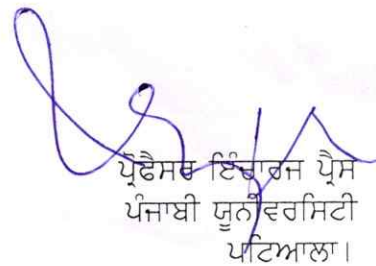 ਪ੍ਰੋਫੈਸਰ ਇੰਚਾਰਜ ਪ੍ਰੈਸ
ਪੰਜਾਬੀ ਯੂਨੀਵਰਸਿਟੀ
ਪਟਿਆਲਾ।